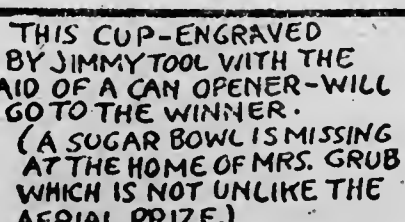 THIS CUP-ENGRAVED
BY JIMMY TOOL WITH THE
AID OF A CAN OPENER-WILL
GO TO THE WINNER.
(A SUGAR BOWL IS MISSING
AT THE HOME OF MRS. GRUB
WHICH IS NOT UNLIKE THE
AERIAL PRIZE.)